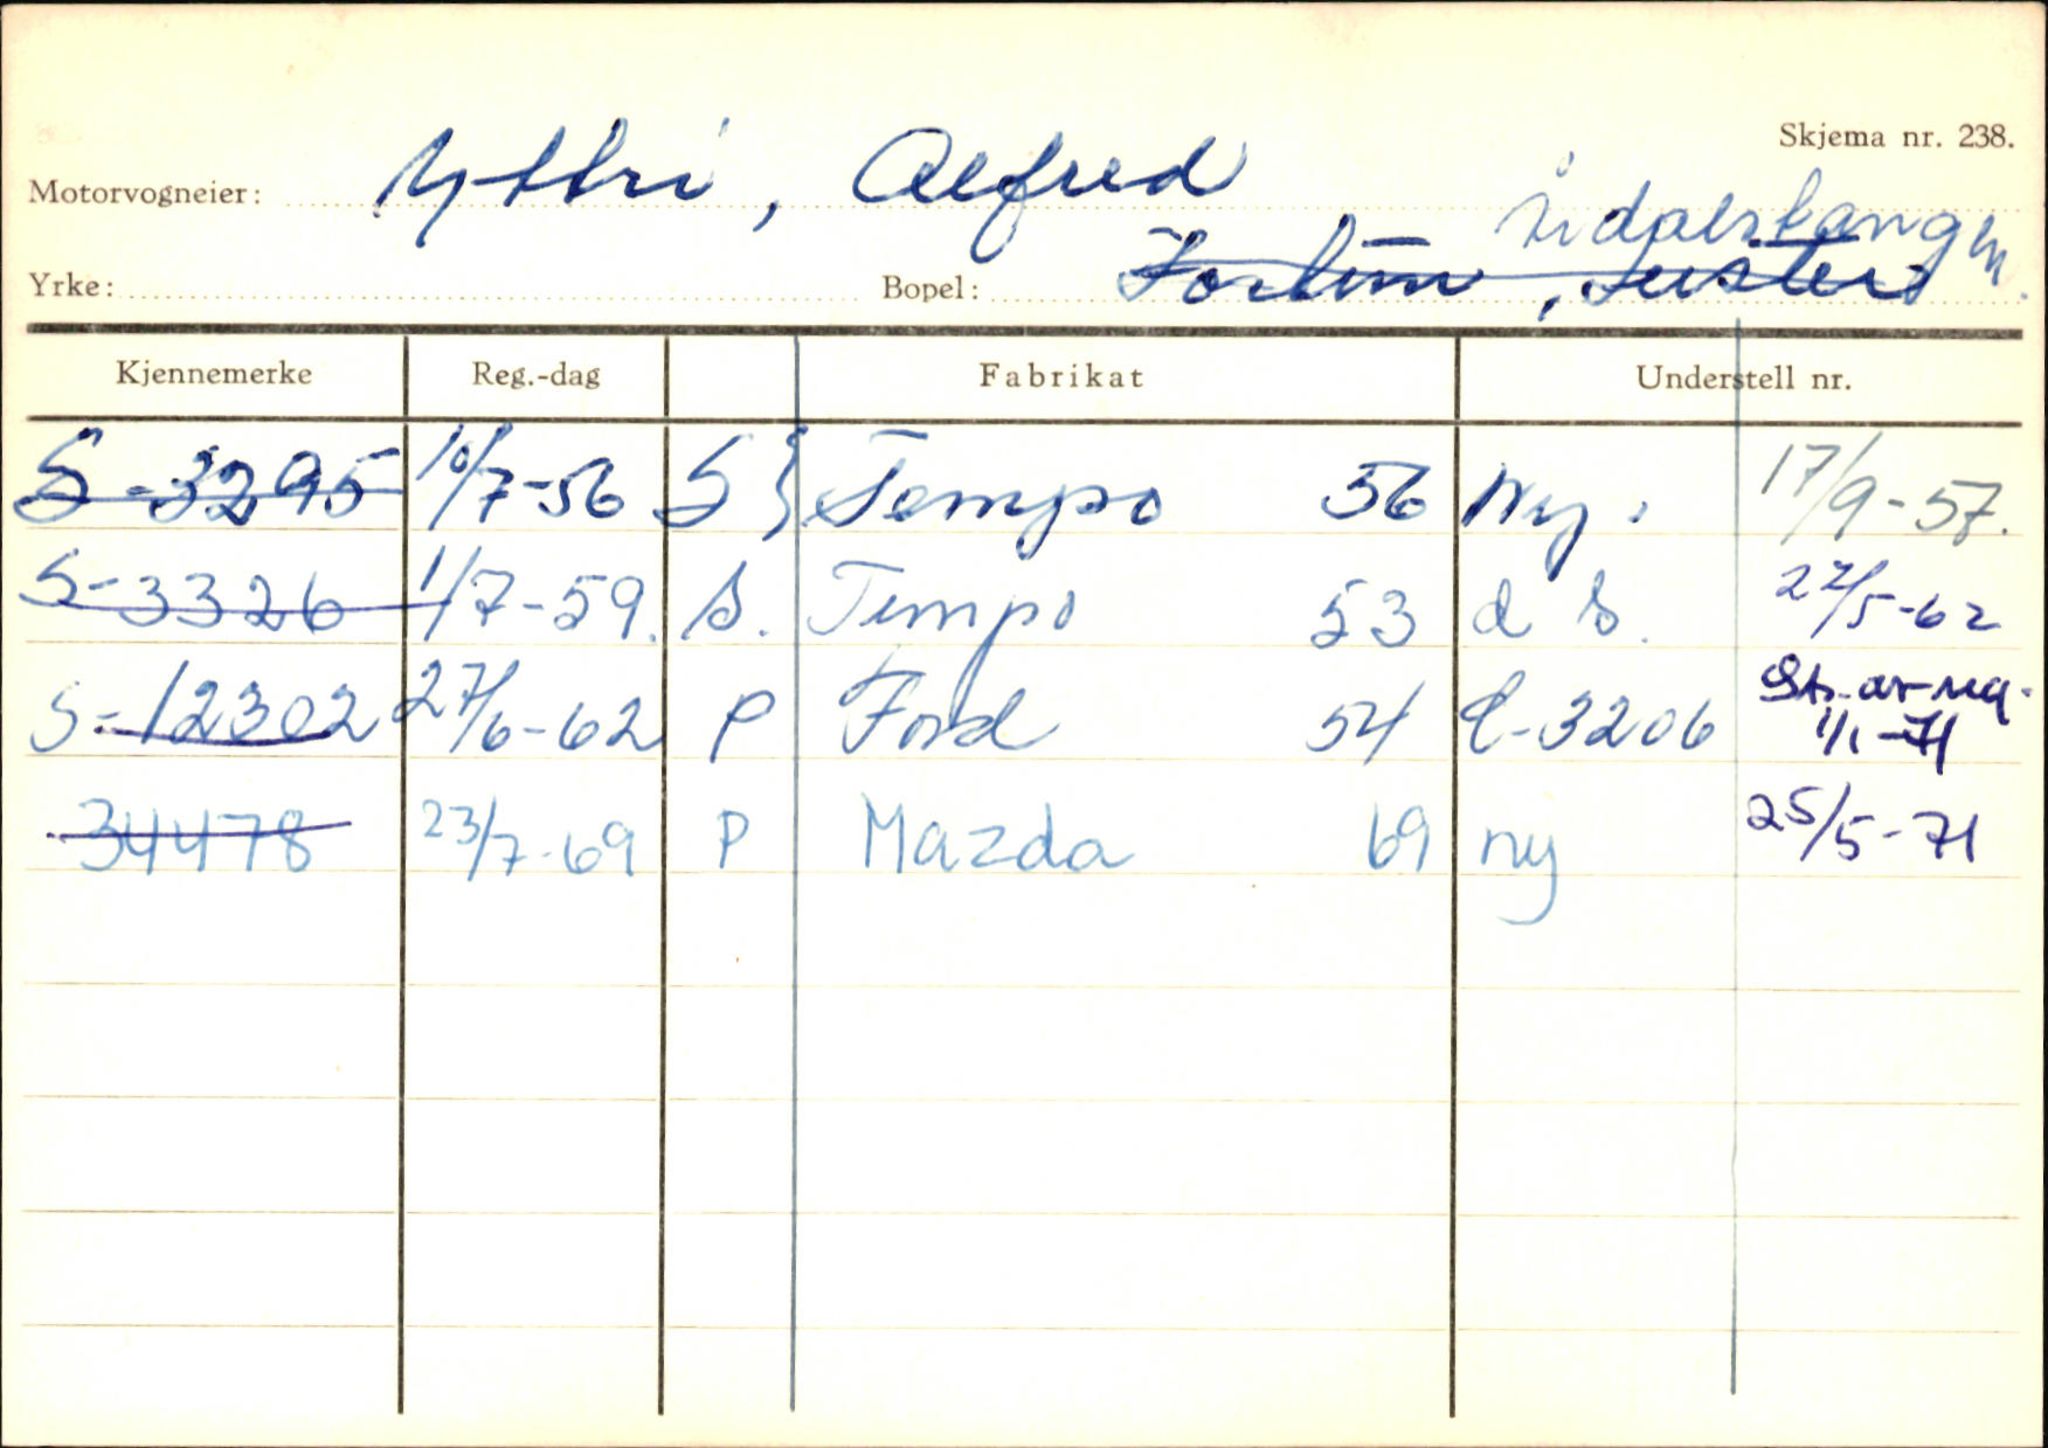 Skjema nr. 238.
Motorvogneier: Yttri, Alfred
Årdalstangen.
Yrke: Bopel: Fortun, Luster
Kjennemerke Reg.-dag Fabrikat Understell nr.
S-3295 10/7-56 S} Tempo 56 Ny. 17/9-57.
S-3326 1/7-59. S. Tempo 53 d S. 22/5-62
S-12302 27/6-62 P Ford 54 C-3206 Str. av reg. 1/1-71
34478 23/7-69 P Mazda 69 ny 25/5-71